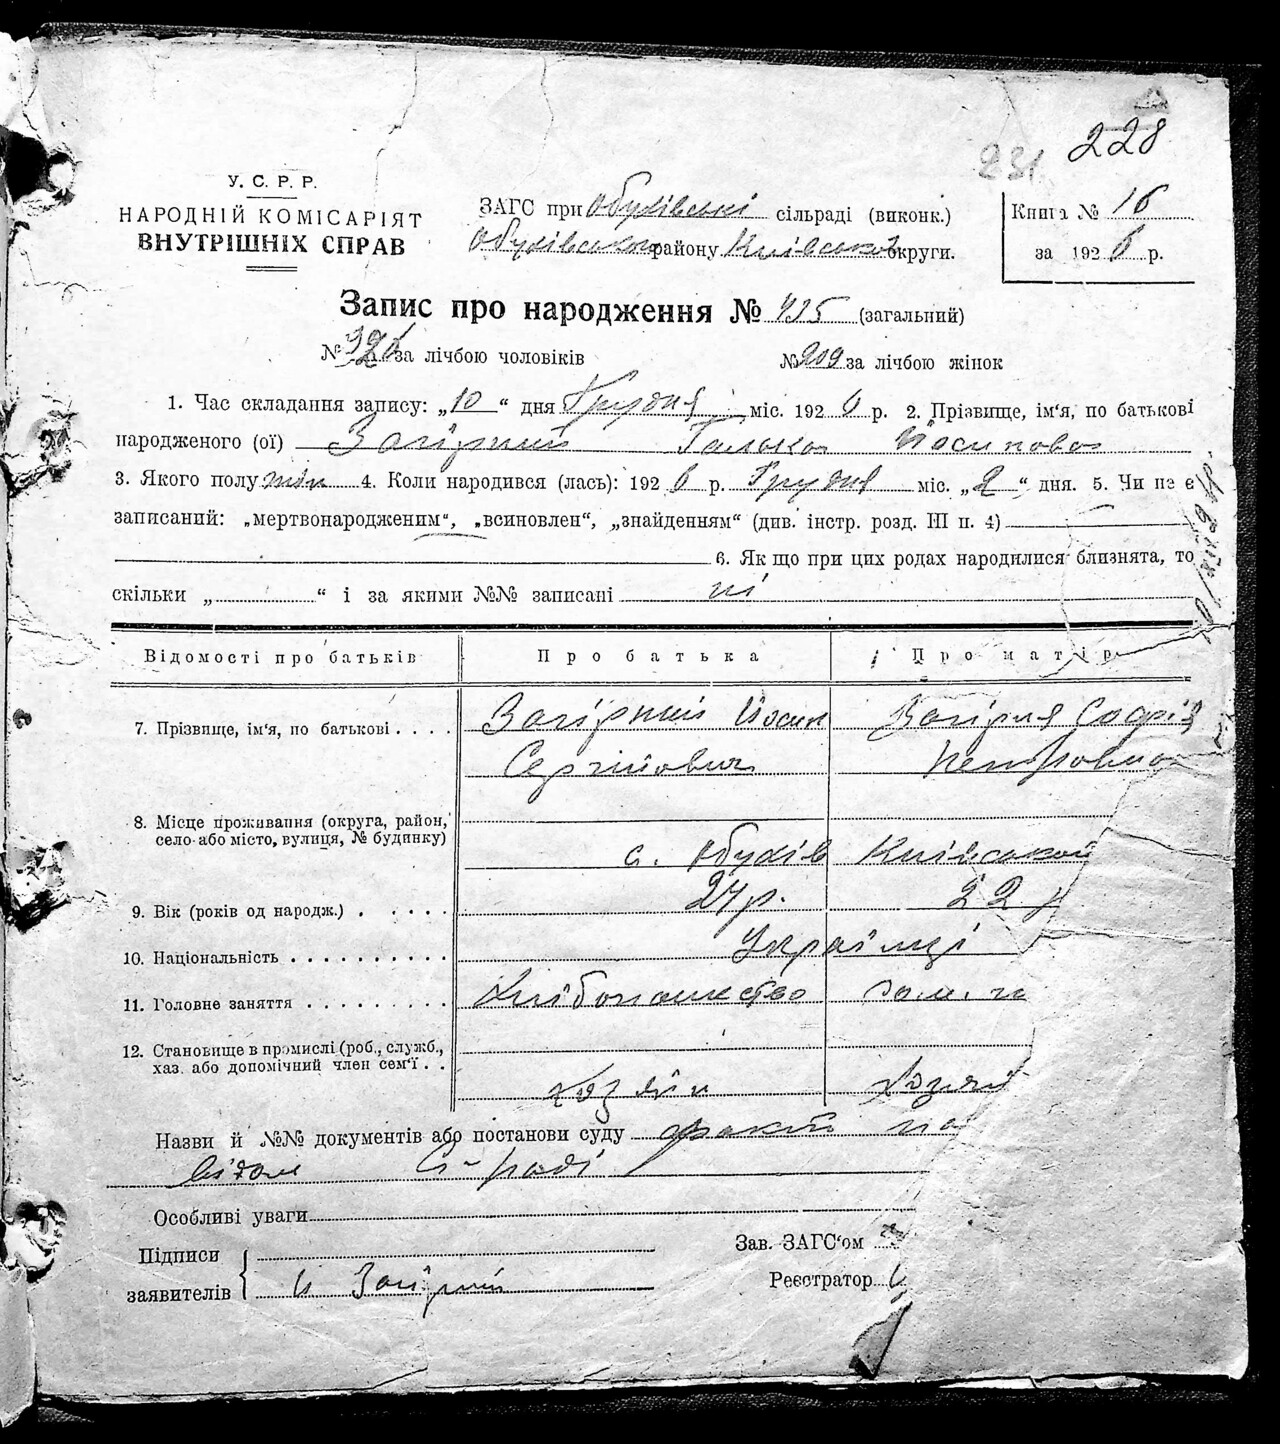 228
231
У. С. Р. Р.
НАРОДНІЙ КОМІСАРІЯТ
ВНУТРІШНІХ СПРАВ
ЗАГС при Обухівські сільраді (виконк.)
Обухівського району Київської округи.
Книга № 16
за 1926 р.
Запис про народження № 435 (загальний)
№ 326 за лічбою чоловіків № 209 за лічбою жінок
1. Час складання запису: „10“ дня Грудня міс. 1926 р. 2. Прізвище, ім'я, по батькові
народженого (ої) Загірний Галька Йосипова
3. Якого полу жін 4. Коли народився (лась): 1926 р. Грудня міс. „2“ дня. 5. Чи не є
записаний: „мертвонародженим“, „всиновлен“, „знайденням“ (див. інстр. розд. III п. 4)
6. Як що при цих родах народилися близнята, то
скільки „ “ і за якими №№ записані ні
Відомості про батьків Про батька Про матір
7. Прізвище, ім'я, по батькові . . . . Загірний Йосип Загірня Софія
Сергійович Петровна
8. Місце проживання (округа, район,
село або місто, вулиця, № будинку)
с. Обухів Київської
9. Вік (років од народж.) . . . . . 24 р. 22 р
10. Національність . . . . . . . . . . Українці
11. Головне заняття . . . . . . . . . Хлібопашество дом. го
12. Становище в промислі (роб., служб.,
хаз. або допомічний член сем'ї . .
хозяїн хозяй
Назви й №№ документів або постанови суду факт по
відом С-раді
Особливі уваги
Підписи
заявителів И Загірний
Зав. ЗАГС'ом
Реєстратор